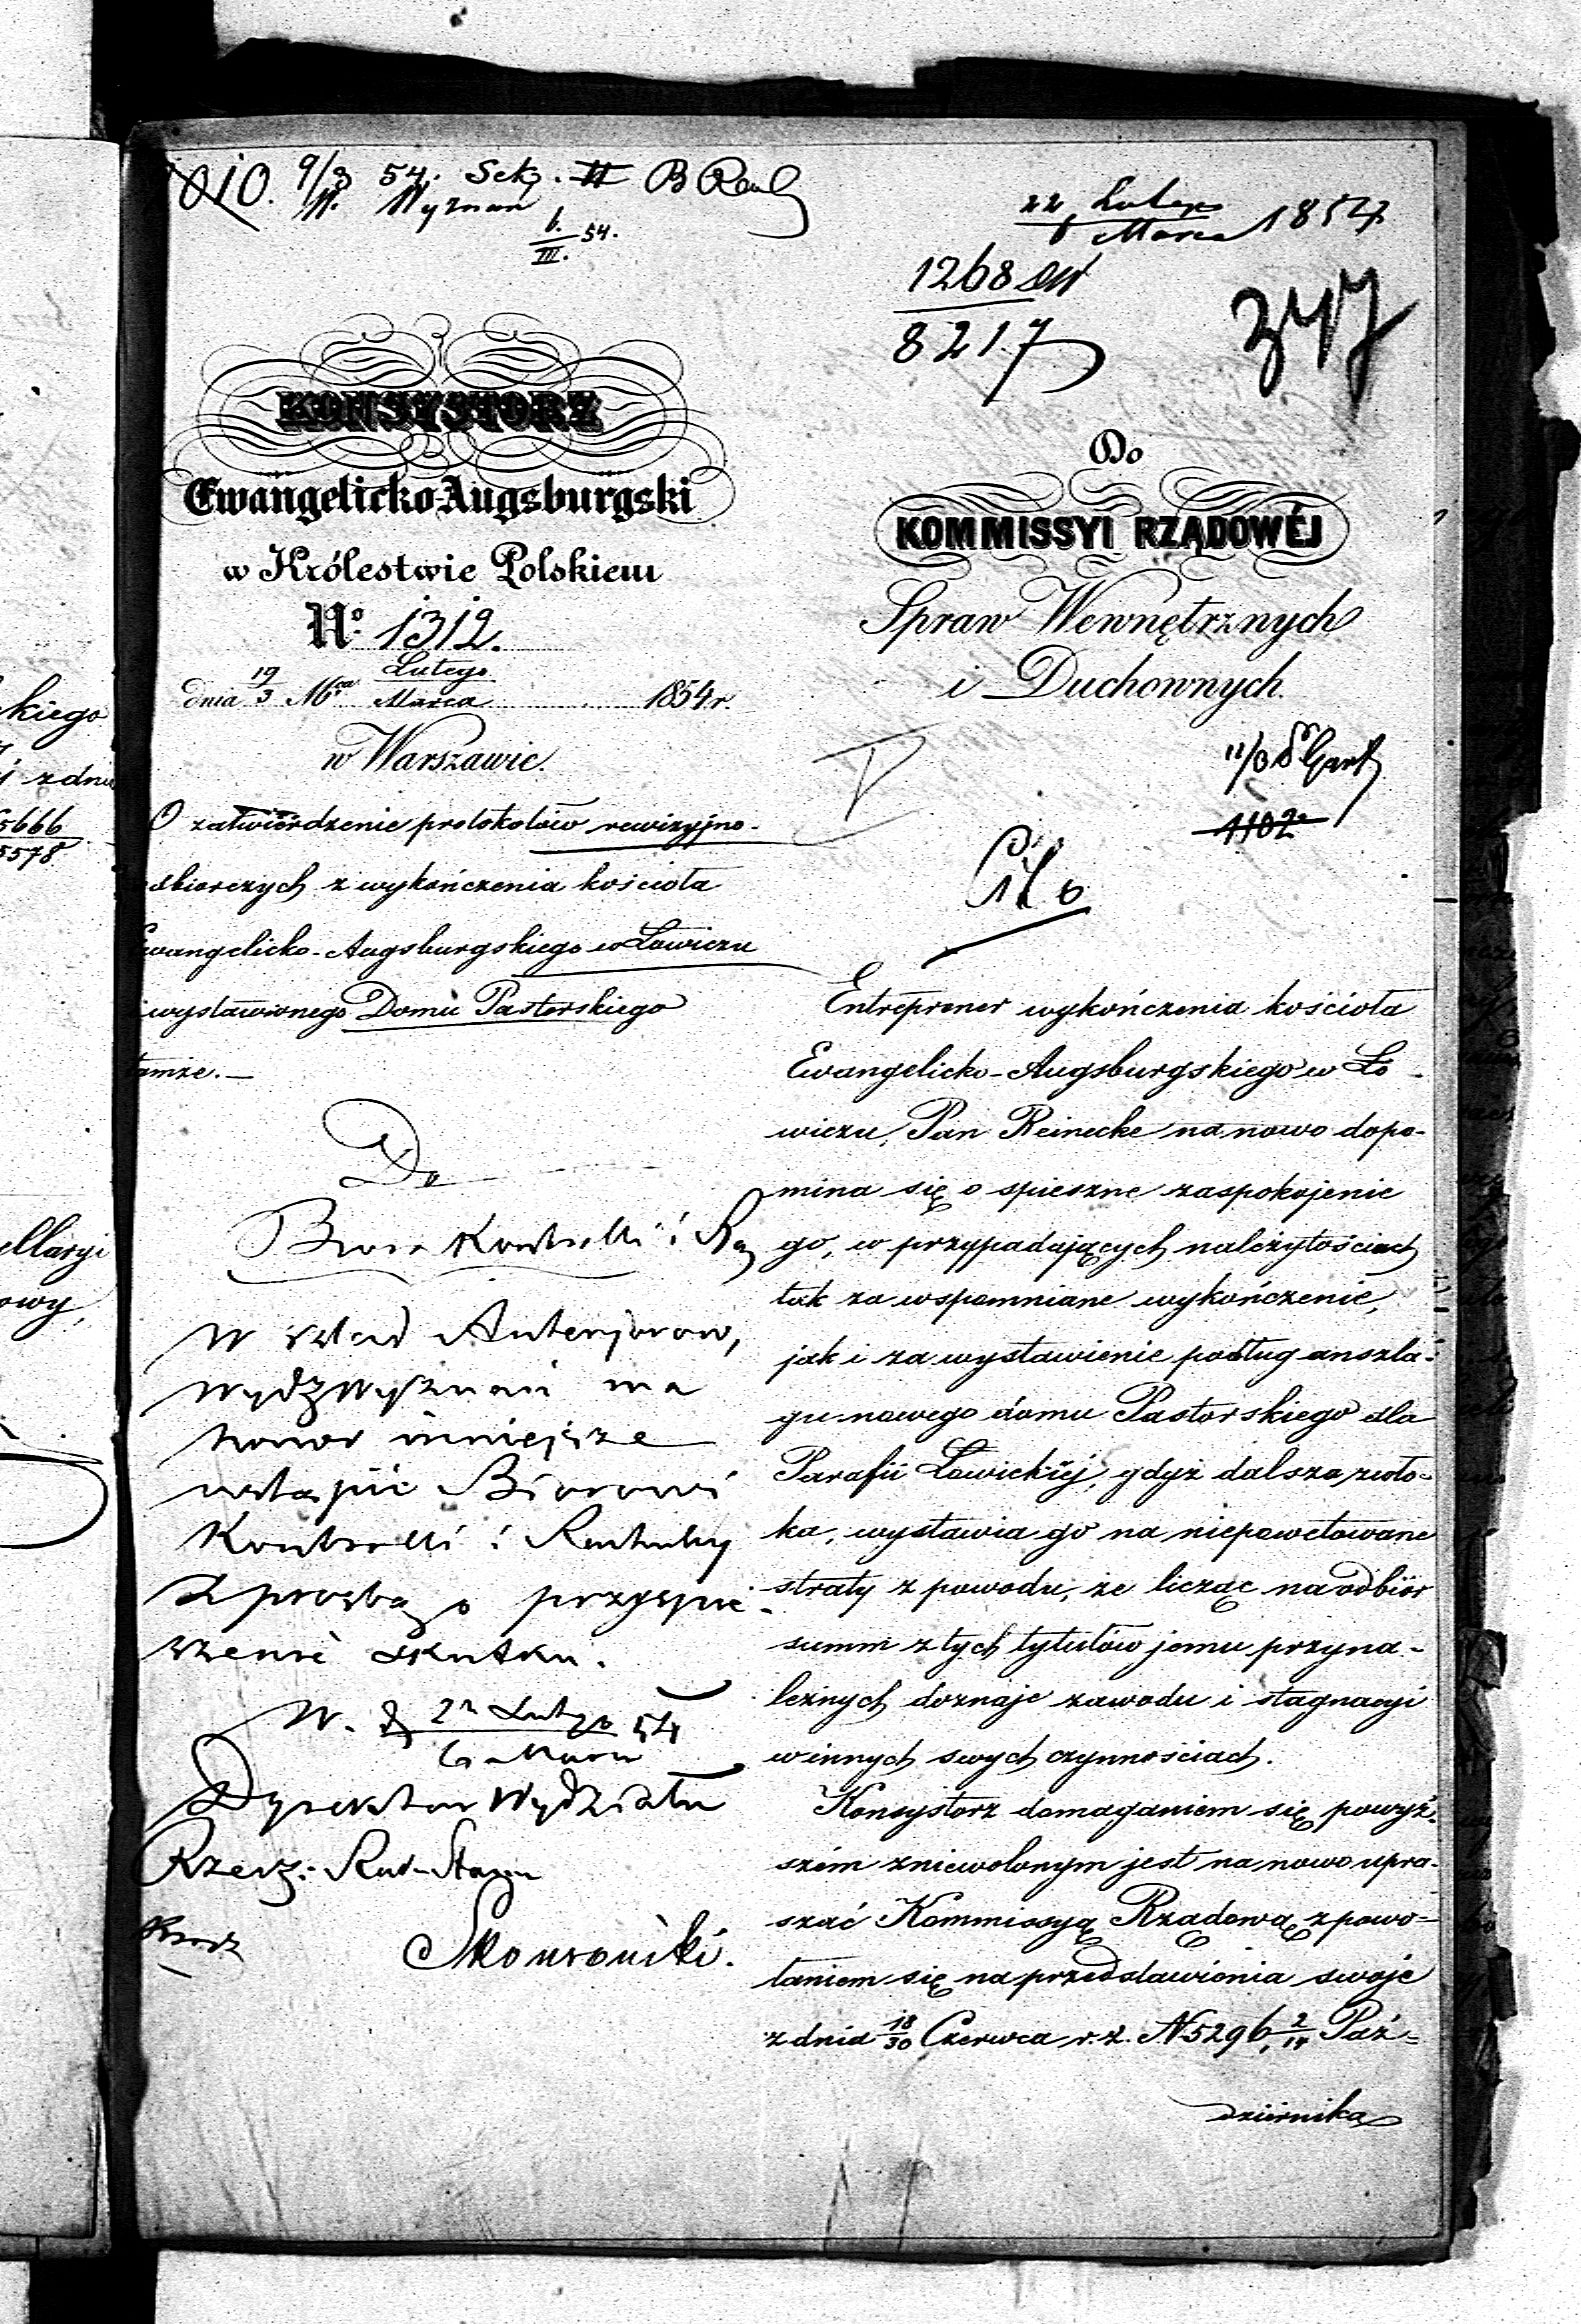 1010. 9/3 54. Sekr. II B
Wyznań
6./III. 54.
22 Lutego / 6 Marca 1854
1268
8217
347
KONSYSTORZ
Ewangelicko-Augsburgski
w Królestwie Polskiem
No. 1312.
dnia 19/3 Mca Lutego/Marca 1854 r.
w Warszawie.
O zatwierdzenie protokołów rewizyjno-
odbiorczych z wykończenia kościoła
Ewangelicko-Augsburgskiego w Łowiczu
i wystawionego Domu Pastorskiego
tamże.—
Do
Biura Kontrolli i
W ślad Anterjorow,
Wydz Wyznań ma
honor niniejsze
ustąpić Biurowi
Kontrolli i Rachuby
z prośbą o przyspie-
szenie skutku.
W. d 22 Lutego / 6 Marca 54
Dyrektor Wydziału
Rzecz: Rad. Stanu
Do
KOMMISSYI RZĄDOWÉJ
Spraw Wewnętrznych
i Duchownych.
11/3
1102
Cito
Entreprener wykończenia kościoła
Ewangelicko-Augsburgskiego w Ło-
wiczu, Pan Reinecke na nowo dopo-
mina się o spieszne zaspokojenie
go, w przypadających należytościach
tak za wspomniane wykończenie,
jak i za wystawienie podług anszla-
gu nowego domu Pastorskiego dla
Parafii Łowickiéj, gdyż dalsza zwło-
ka, wystawia go na niepowetowane
straty z powodu, że licząc na odbiór
summ z tych tytułów jemu przyna-
leżnych doznaje zawodu i stagnacyi
w innych swych czynnościach.
Konsystorz domaganiem się powyż-
szém zniewolonym jest na nowo upra-
szać Kommissyą Rządową z powo-
łaniem się na przedstawienia swoje
z dnia 18/30 Czerwca r. z. N 5296, 2/14 Paź-
dziernika
kiego
z dnia
5666
5578
ellaryi
owy,